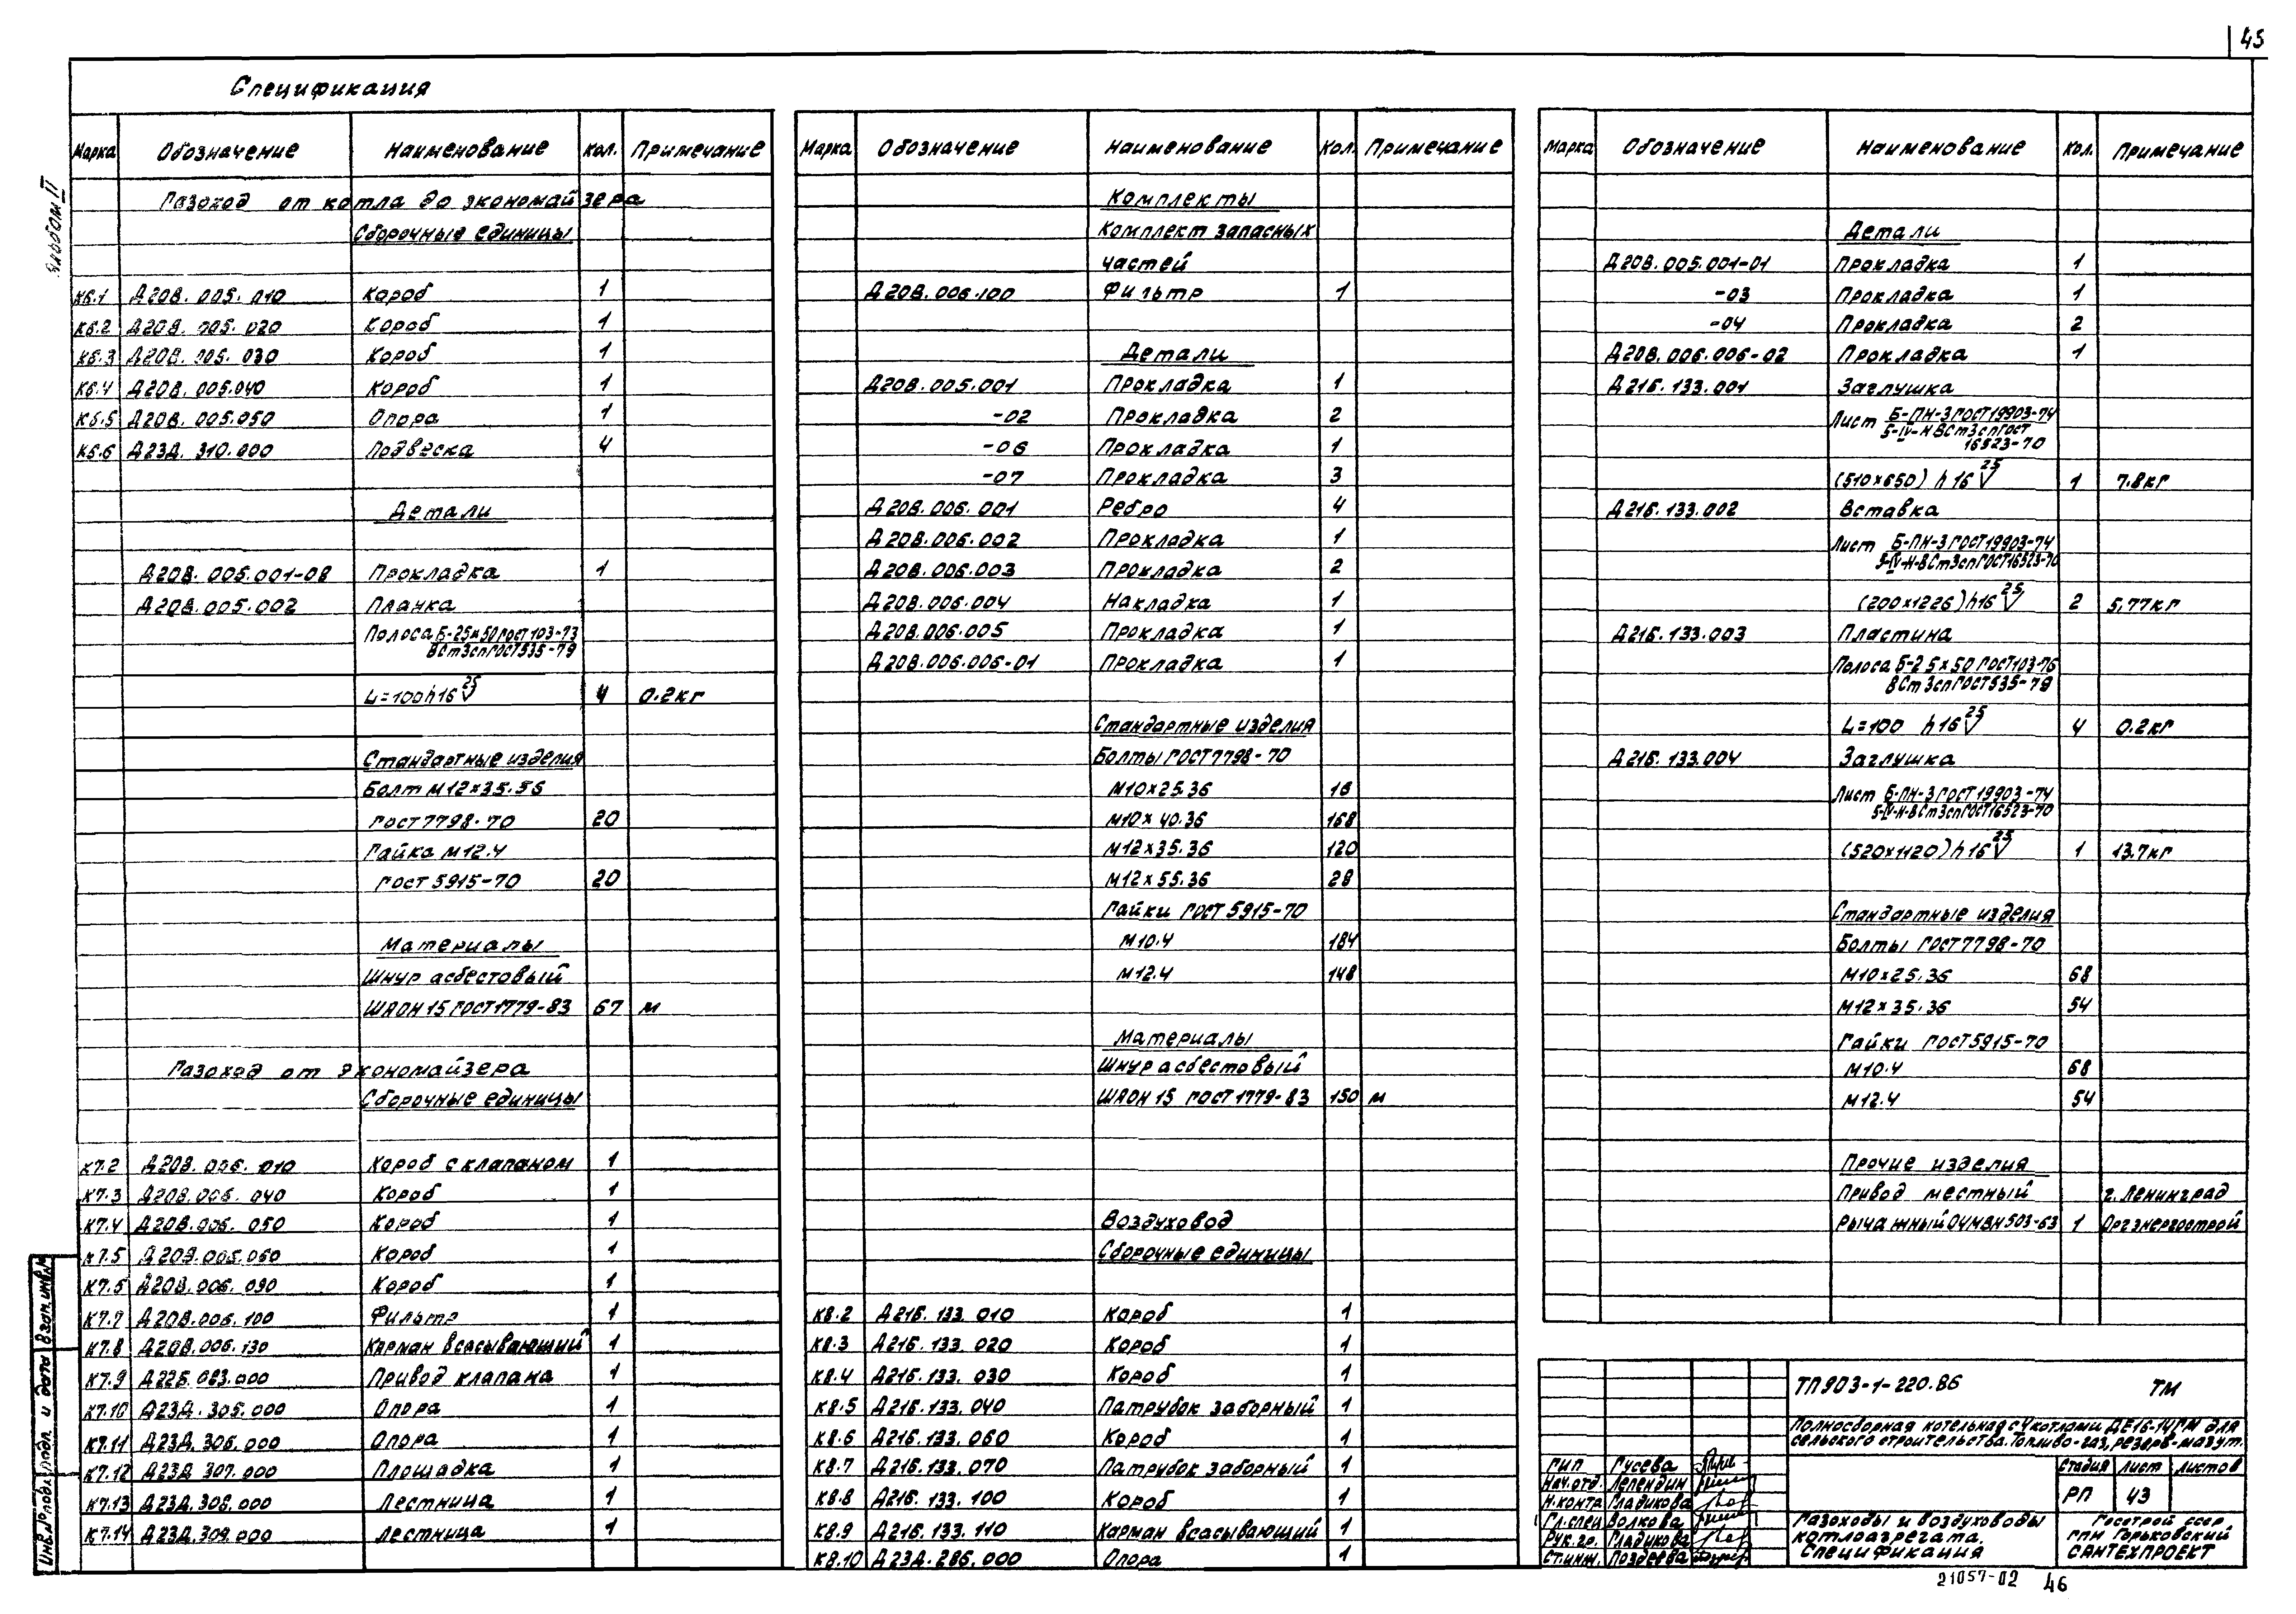 45
Спецификация
Альбом II
Марка Обозначение Наименование Кол. Примечание
Газоход от котла до экономайзера
Сборочные единицы
К6.1 Д20В.005.010 Короб 1
К6.2 Д20В.005.020 Короб 1
К6.3 Д20В.005.030 Короб 1
К6.4 Д20В.005.040 Короб 1
К6.5 Д20В.005.050 Опора 1
К6.6 Д23Д.310.000 Подвеска 4
Детали
Д20В.005.001-08 Прокладка 1
Д20В.005.002 Планка
Полоса Б-25×50 ГОСТ 103-73
ВСт3сп ГОСТ 535-79
L=100 h16 25 4 0.2кг
Стандартные изделия
Болт М12×35.56
ГОСТ 7798-70 20
Гайка М12.4
ГОСТ 5915-70 20
Материалы
Шнур асбестовый
ШАОН 15 ГОСТ 1779-83 67 м
Газоход от экономайзера
Сборочные единицы
К7.2 Д20В.006.010 Короб с клапаном 1
К7.3 Д20В.006.040 Короб 1
К7.4 Д20В.006.050 Короб 1
К7.5 Д20В.006.060 Короб 1
К7.5 Д20В.006.090 Короб 1
К7.7 Д20В.006.100 Фильтр 1
К7.8 Д20В.006.130 Карман всасывающий 1
К7.9 Д22Б.083.000 Привод клапана 1
К7.10 Д23Д.305.000 Опора 1
К7.11 Д23Д.306.000 Опора 1
К7.12 Д23Д.307.000 Площадка 1
К7.13 Д23Д.308.000 Лестница 1
К7.14 Д23Д.309.000 Лестница 1
Марка Обозначение Наименование Кол. Примечание
Комплекты
Комплект запасных
частей
Д20В.006.100 Фильтр 1
Детали
Д20В.005.001 Прокладка 1
-02 Прокладка 2
-06 Прокладка 1
-07 Прокладка 3
Д20В.006.001 Ребро 4
Д20В.006.002 Прокладка 1
Д20В.006.003 Прокладка 2
Д20В.006.004 Накладка 1
Д20В.006.005 Прокладка 1
Д20В.006.006-01 Прокладка 1
Стандартные изделия
Болты ГОСТ 7798-70
М10×25.36 16
М10×40.36 168
М12×35.36 120
М12×55.36 28
Гайки ГОСТ 5915-70
М10.4 184
М12.4 148
Материалы
Шнур асбестовый
ШАОН 15 ГОСТ 1779-83 150 м
Воздуховод
Сборочные единицы
К8.2 Д21Б.133.010 Короб 1
К8.3 Д21Б.133.020 Короб 1
К8.4 Д21Б.133.030 Короб 1
К8.5 Д21Б.133.040 Патрубок заборный 1
К8.6 Д21Б.133.060 Короб 1
К8.7 Д21Б.133.070 Патрубок заборный 1
К8.8 Д21Б.133.100 Короб 1
К8.9 Д21Б.133.110 Карман всасывающий 1
К8.10 Д23Д.286.000 Опора 1
Марка Обозначение Наименование Кол. Примечание
Детали
Д20В.005.001-01 Прокладка 1
-03 Прокладка 1
-04 Прокладка 2
Д20В.006.006-02 Прокладка 1
Д21Б.133.001 Заглушка
Лист Б-ПН-3 ГОСТ 19903-74
5-IV-Н ВСт3сп ГОСТ
16523-70
(510×650) h16 25 1 7.8кг
Д21Б.133.002 Вставка
Лист Б-ПН-3 ГОСТ 19903-74
5-IV-Н-ВСт3сп ГОСТ 16523-70
(200×1226) h16 25 2 5.77кг
Д21Б.133.003 Пластина
Полоса Б-25×50 ГОСТ 103-76
ВСт3сп ГОСТ 535-79
L=100 h16 25 4 0.2кг
Д21Б.133.004 Заглушка
Лист Б-ПН-3 ГОСТ 19903-74
5-IV-Н-ВСт3сп ГОСТ 16523-70
(520×1120) h16 25 1 13.7кг
Стандартные изделия
Болты ГОСТ 7798-70
М10×25.36 68
М12×35.36 54
Гайки ГОСТ 5915-70
М10.4 68
М12.4 54
Прочие изделия
Привод местный г. Ленинград
Рычажный 04МВН 503-63 1 Оргэнергострой
ТП 903-1-220.86 ТМ
Полносборная котельная с 4 котлами ДЕ16-14ГМ для
сельского строительства. Топливо-газ, резерв-мазут.
ГИП Гусева
Нач.отд. Лепендин
Н.контр Гладикова
Гл.спец Волкова
Рук.гр. Гладикова
Ст.инж. Поздеева
Стадия Лист Листов
РП 43
Газоходы и воздуховоды
котлоагрегата.
Спецификация
Госстрой СССР
ГПИ Горьковский
САНТЕХПРОЕКТ
21057-02 46
Инв.№подл. Подп. и дата Взам.инв.№